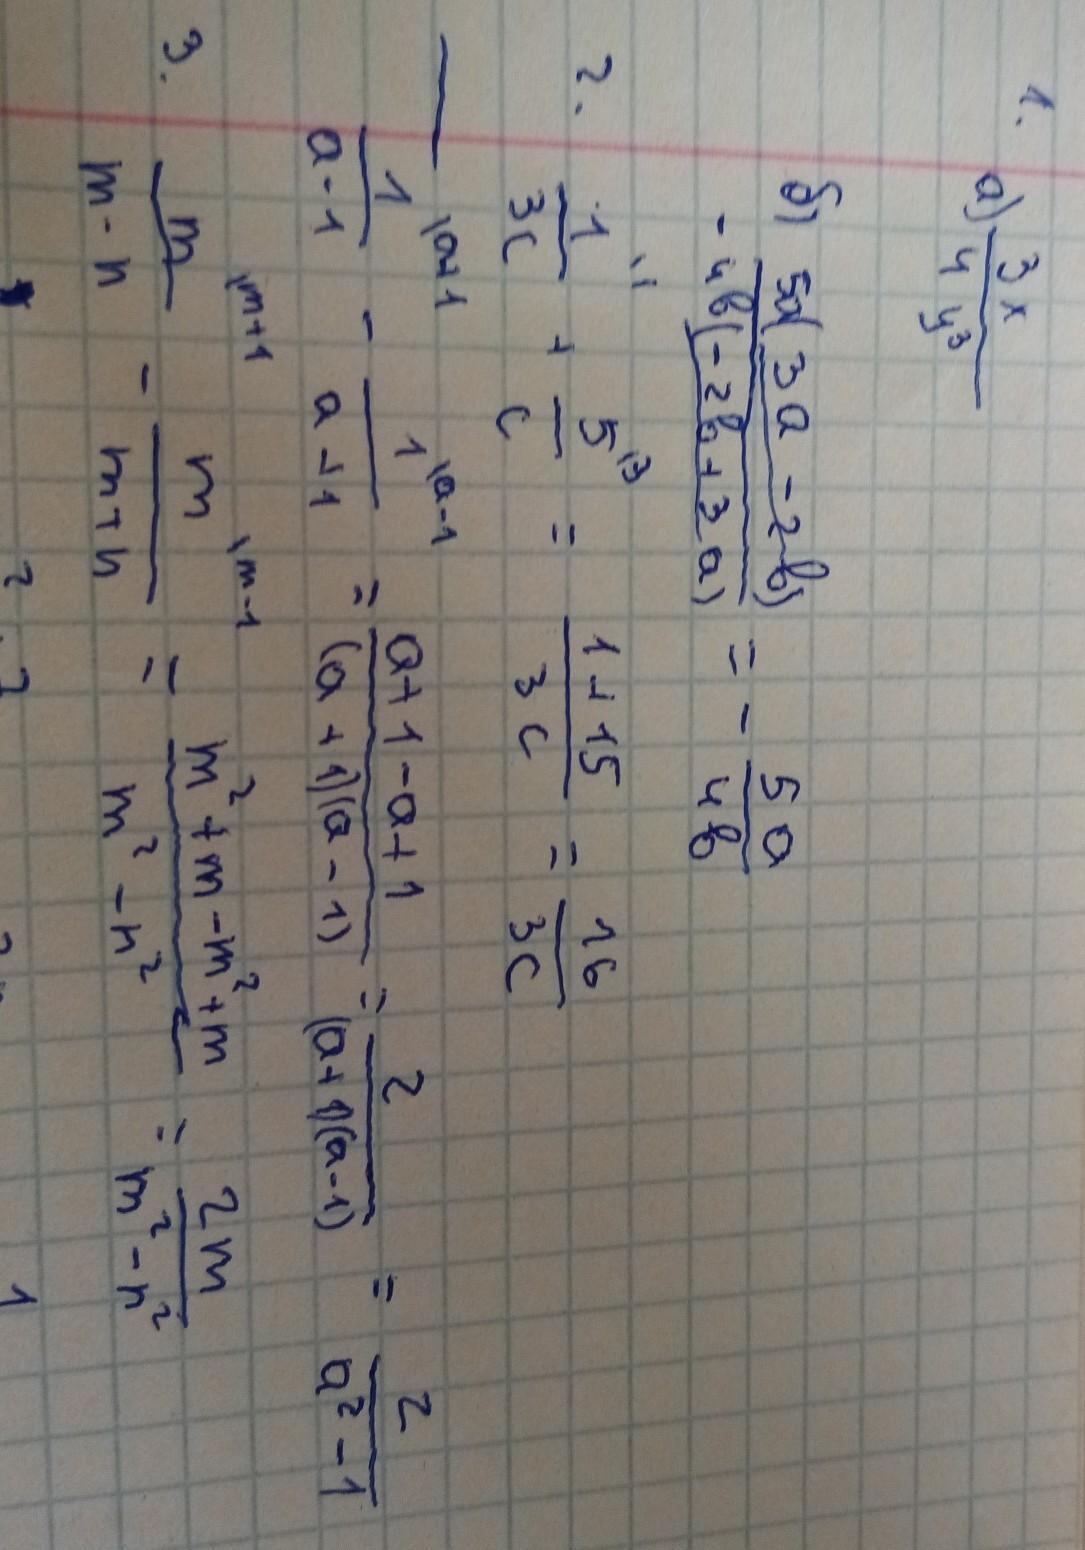 1.
а) 3x / 4y³
б) 5a(3a - 2b) / -4b(-2b + 3a) = - 5a / 4b
2. 1 \1 / 3c + 5 \3 / c = 1 + 15 / 3c = 16 / 3c
1 \a+1 / a - 1 - 1 \a-1 / a + 1 = a + 1 - a + 1 / (a + 1)(a - 1) = 2 / (a + 1)(a - 1) = 2 / a² - 1
3. m \m+1 / m - n - m \m-1 / m + n = m² + m - m² + m / m² - n² = 2m / m² - n²